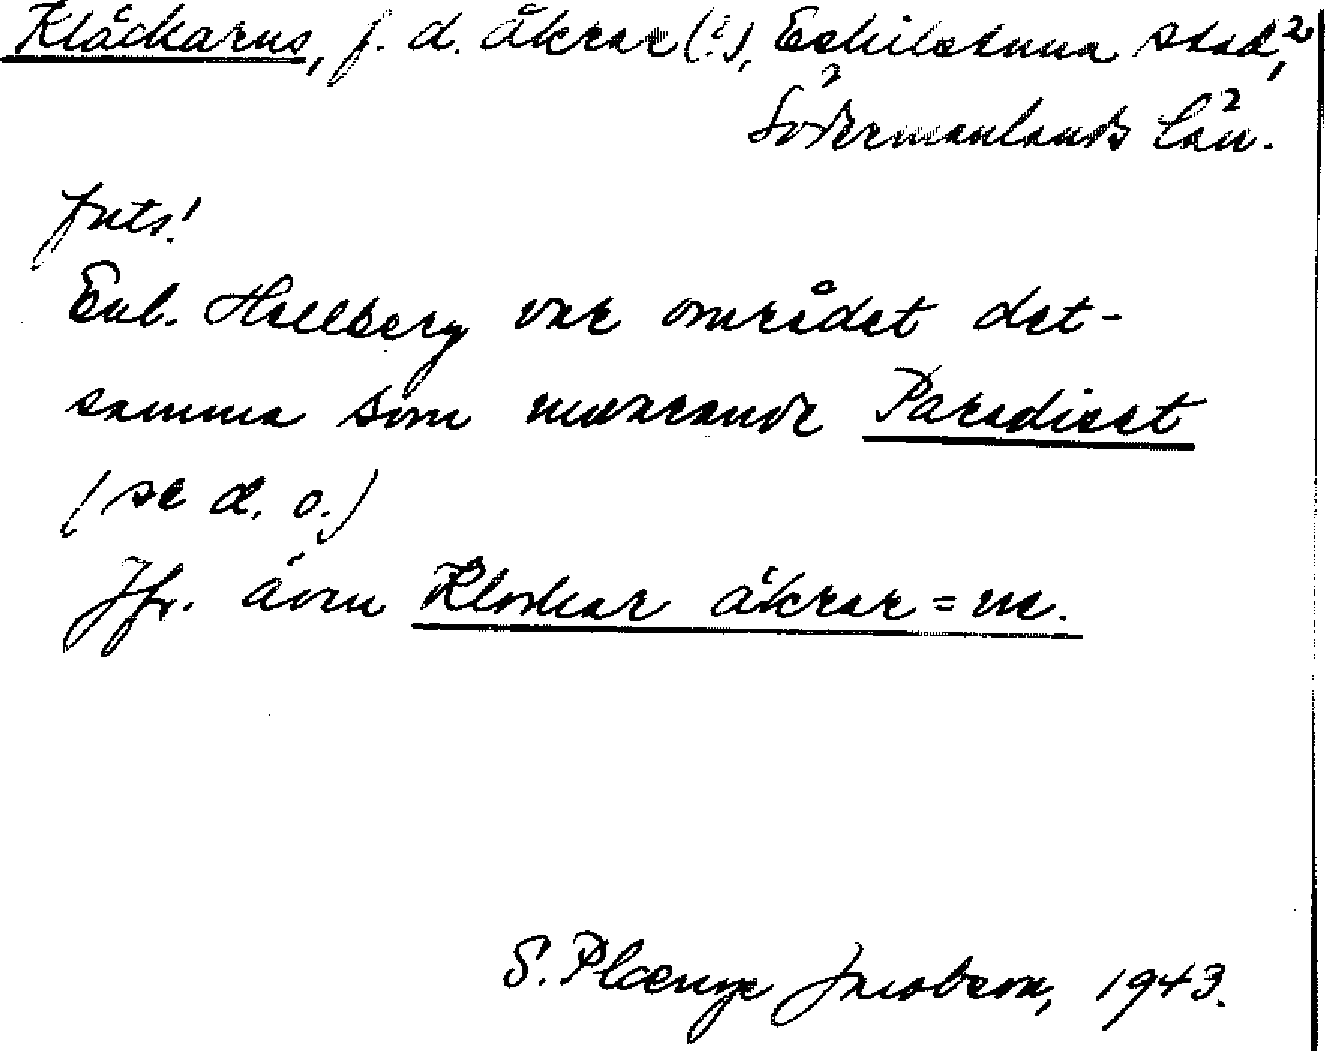 Klåckarns, f. d. åkrar (?), Eskilstuna stad,
Södermanlands län.
Enl. Hellberg var området det-
samma som nuvarande Paradiset
(se d. o.)
Jfr. även Klockar åkrar = na.
S. Plænge Jacobson, 1943.